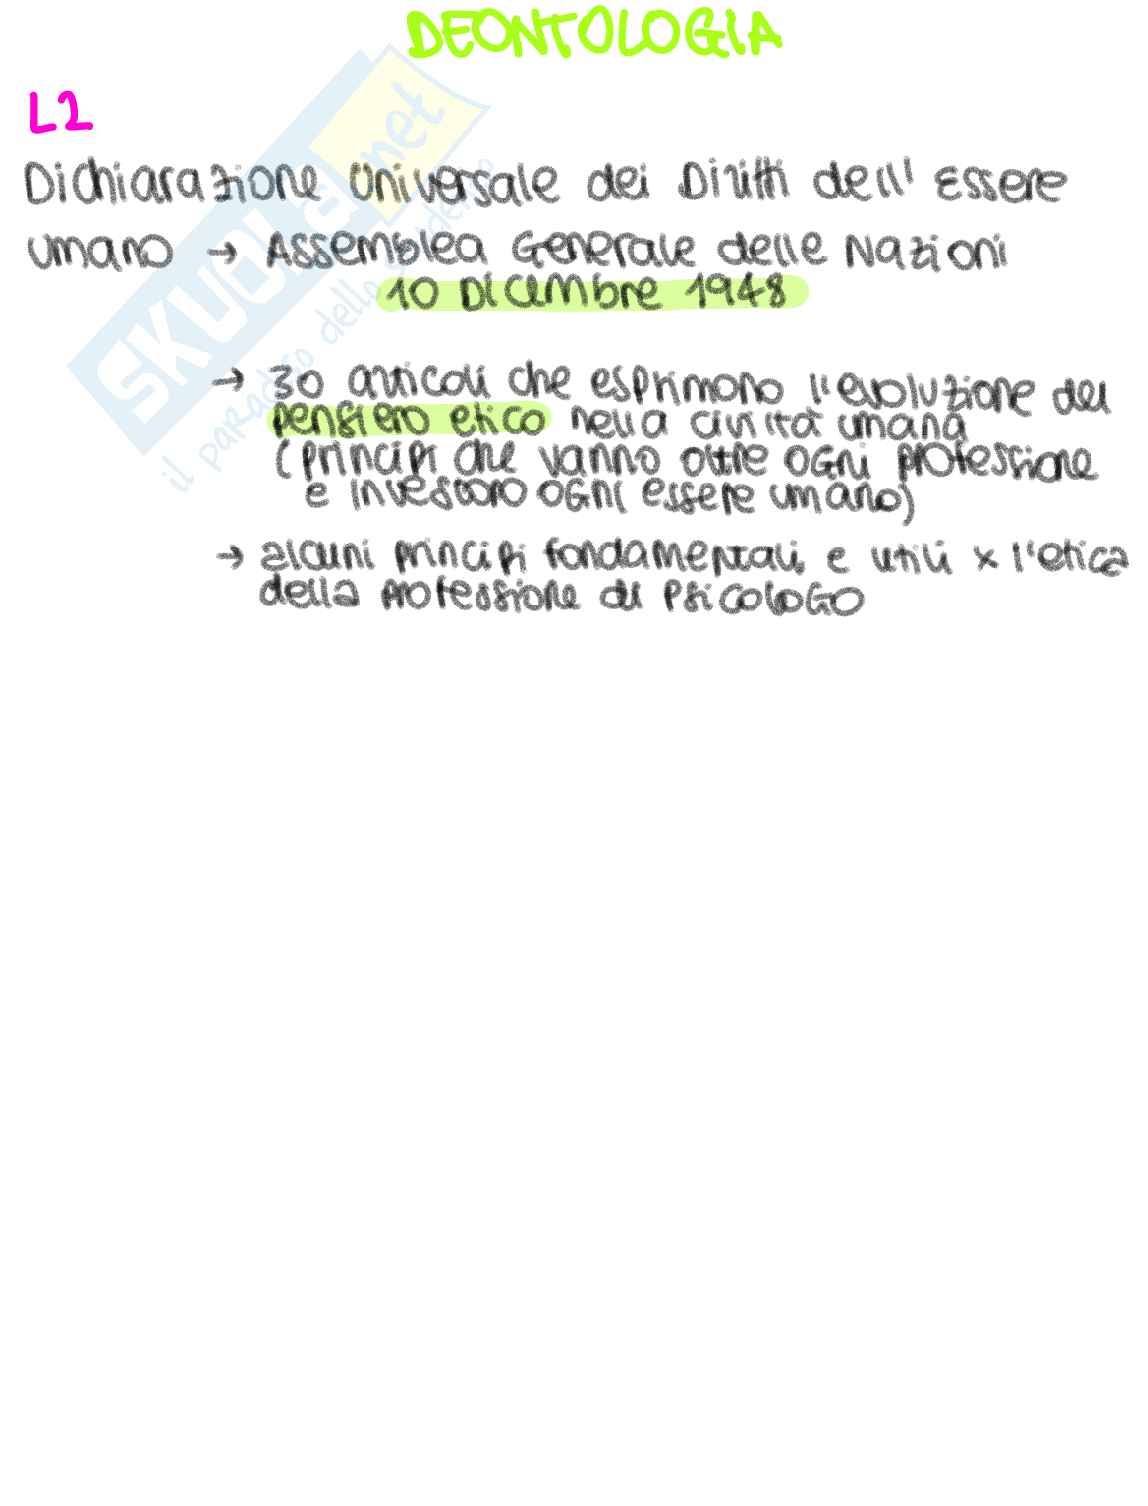 DEONTOLOGIA
L2
Dichiarazione Universale dei Diritti dell' Essere
umano → Assemblea Generale delle Nazioni
10 Dicembre 1948
→ 30 articoli che esprimono l'evoluzione del
pensiero etico nella civiltà umana
(principi che vanno oltre ogni professione
e investono ogni essere umano)
→ alcuni principi fondamentali e utili x l'etica
della professione di Psicologo
SKUOLA.net
il paradiso dello studente